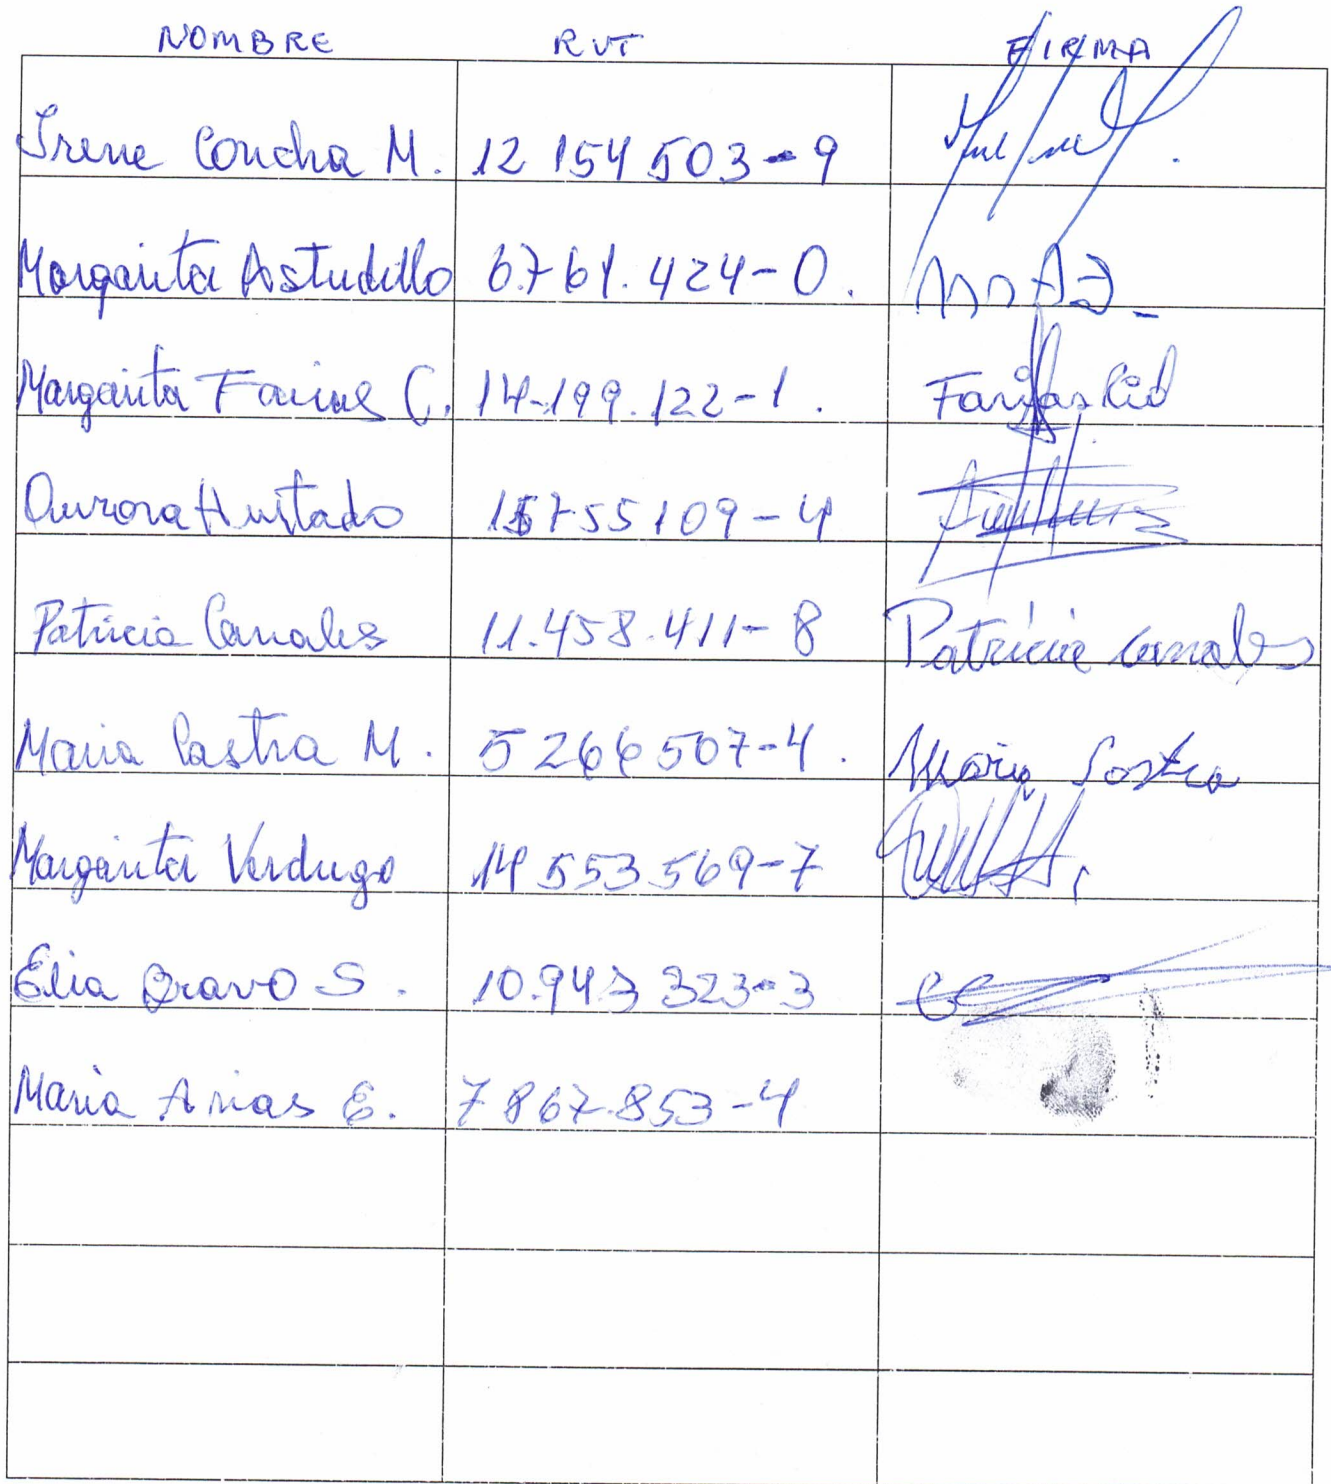 NOMBRE RUT FIRMA
Irene Concha M. 12 154 503-9
Margarita Astudillo 6.761.424-0.
Margarita Farias C. 14-199.122-1. Farias Cid
Aurora Hurtado 15755109-4
Patricia Canales 11.458.411-8 Patricia Canales
Maria Castra M. 5266507-4. Maria Castra
Margarita Verdugo 14 553 569-7
Elia Bravo S. 10.943 323-3
Maria Arias E. 7867.853-4